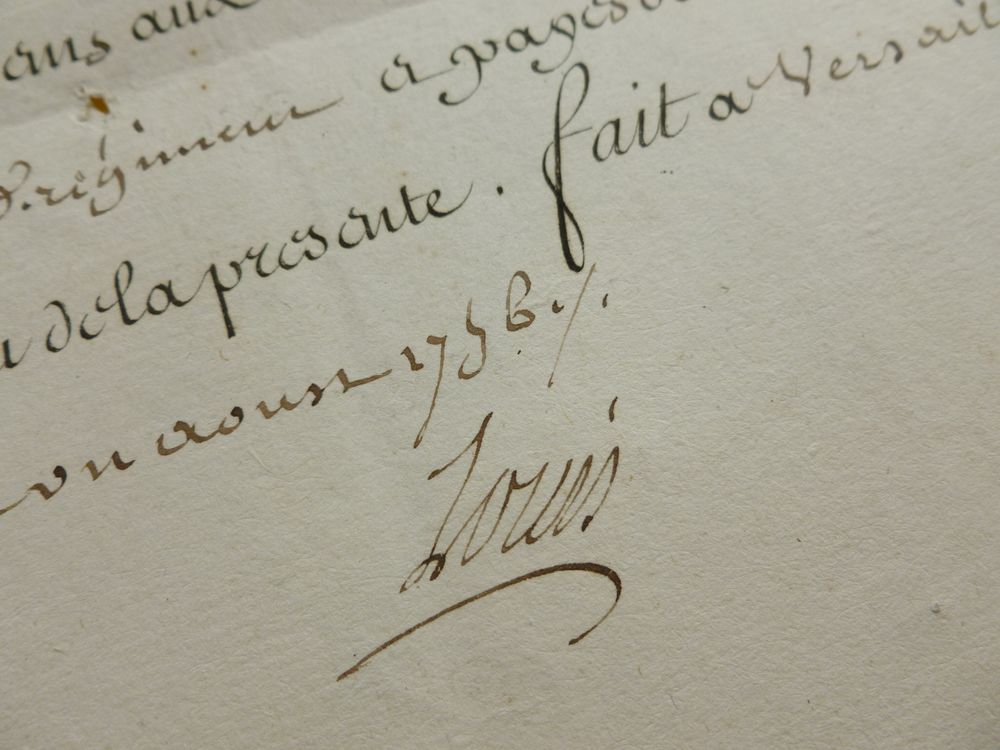 ans aux
regiment a payes
de la presente. fait a Versail
on aoust 1756 ./.
Louis